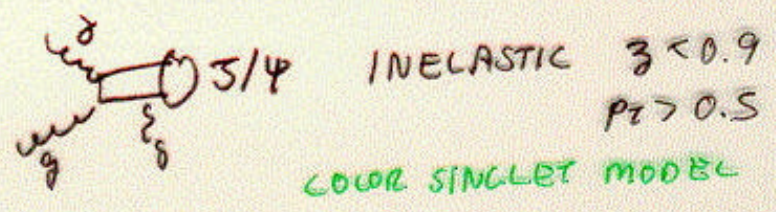 γ
J/ψ INELASTIC z < 0.9
g g PT > 0.5
COLOR SINGLET MODEL